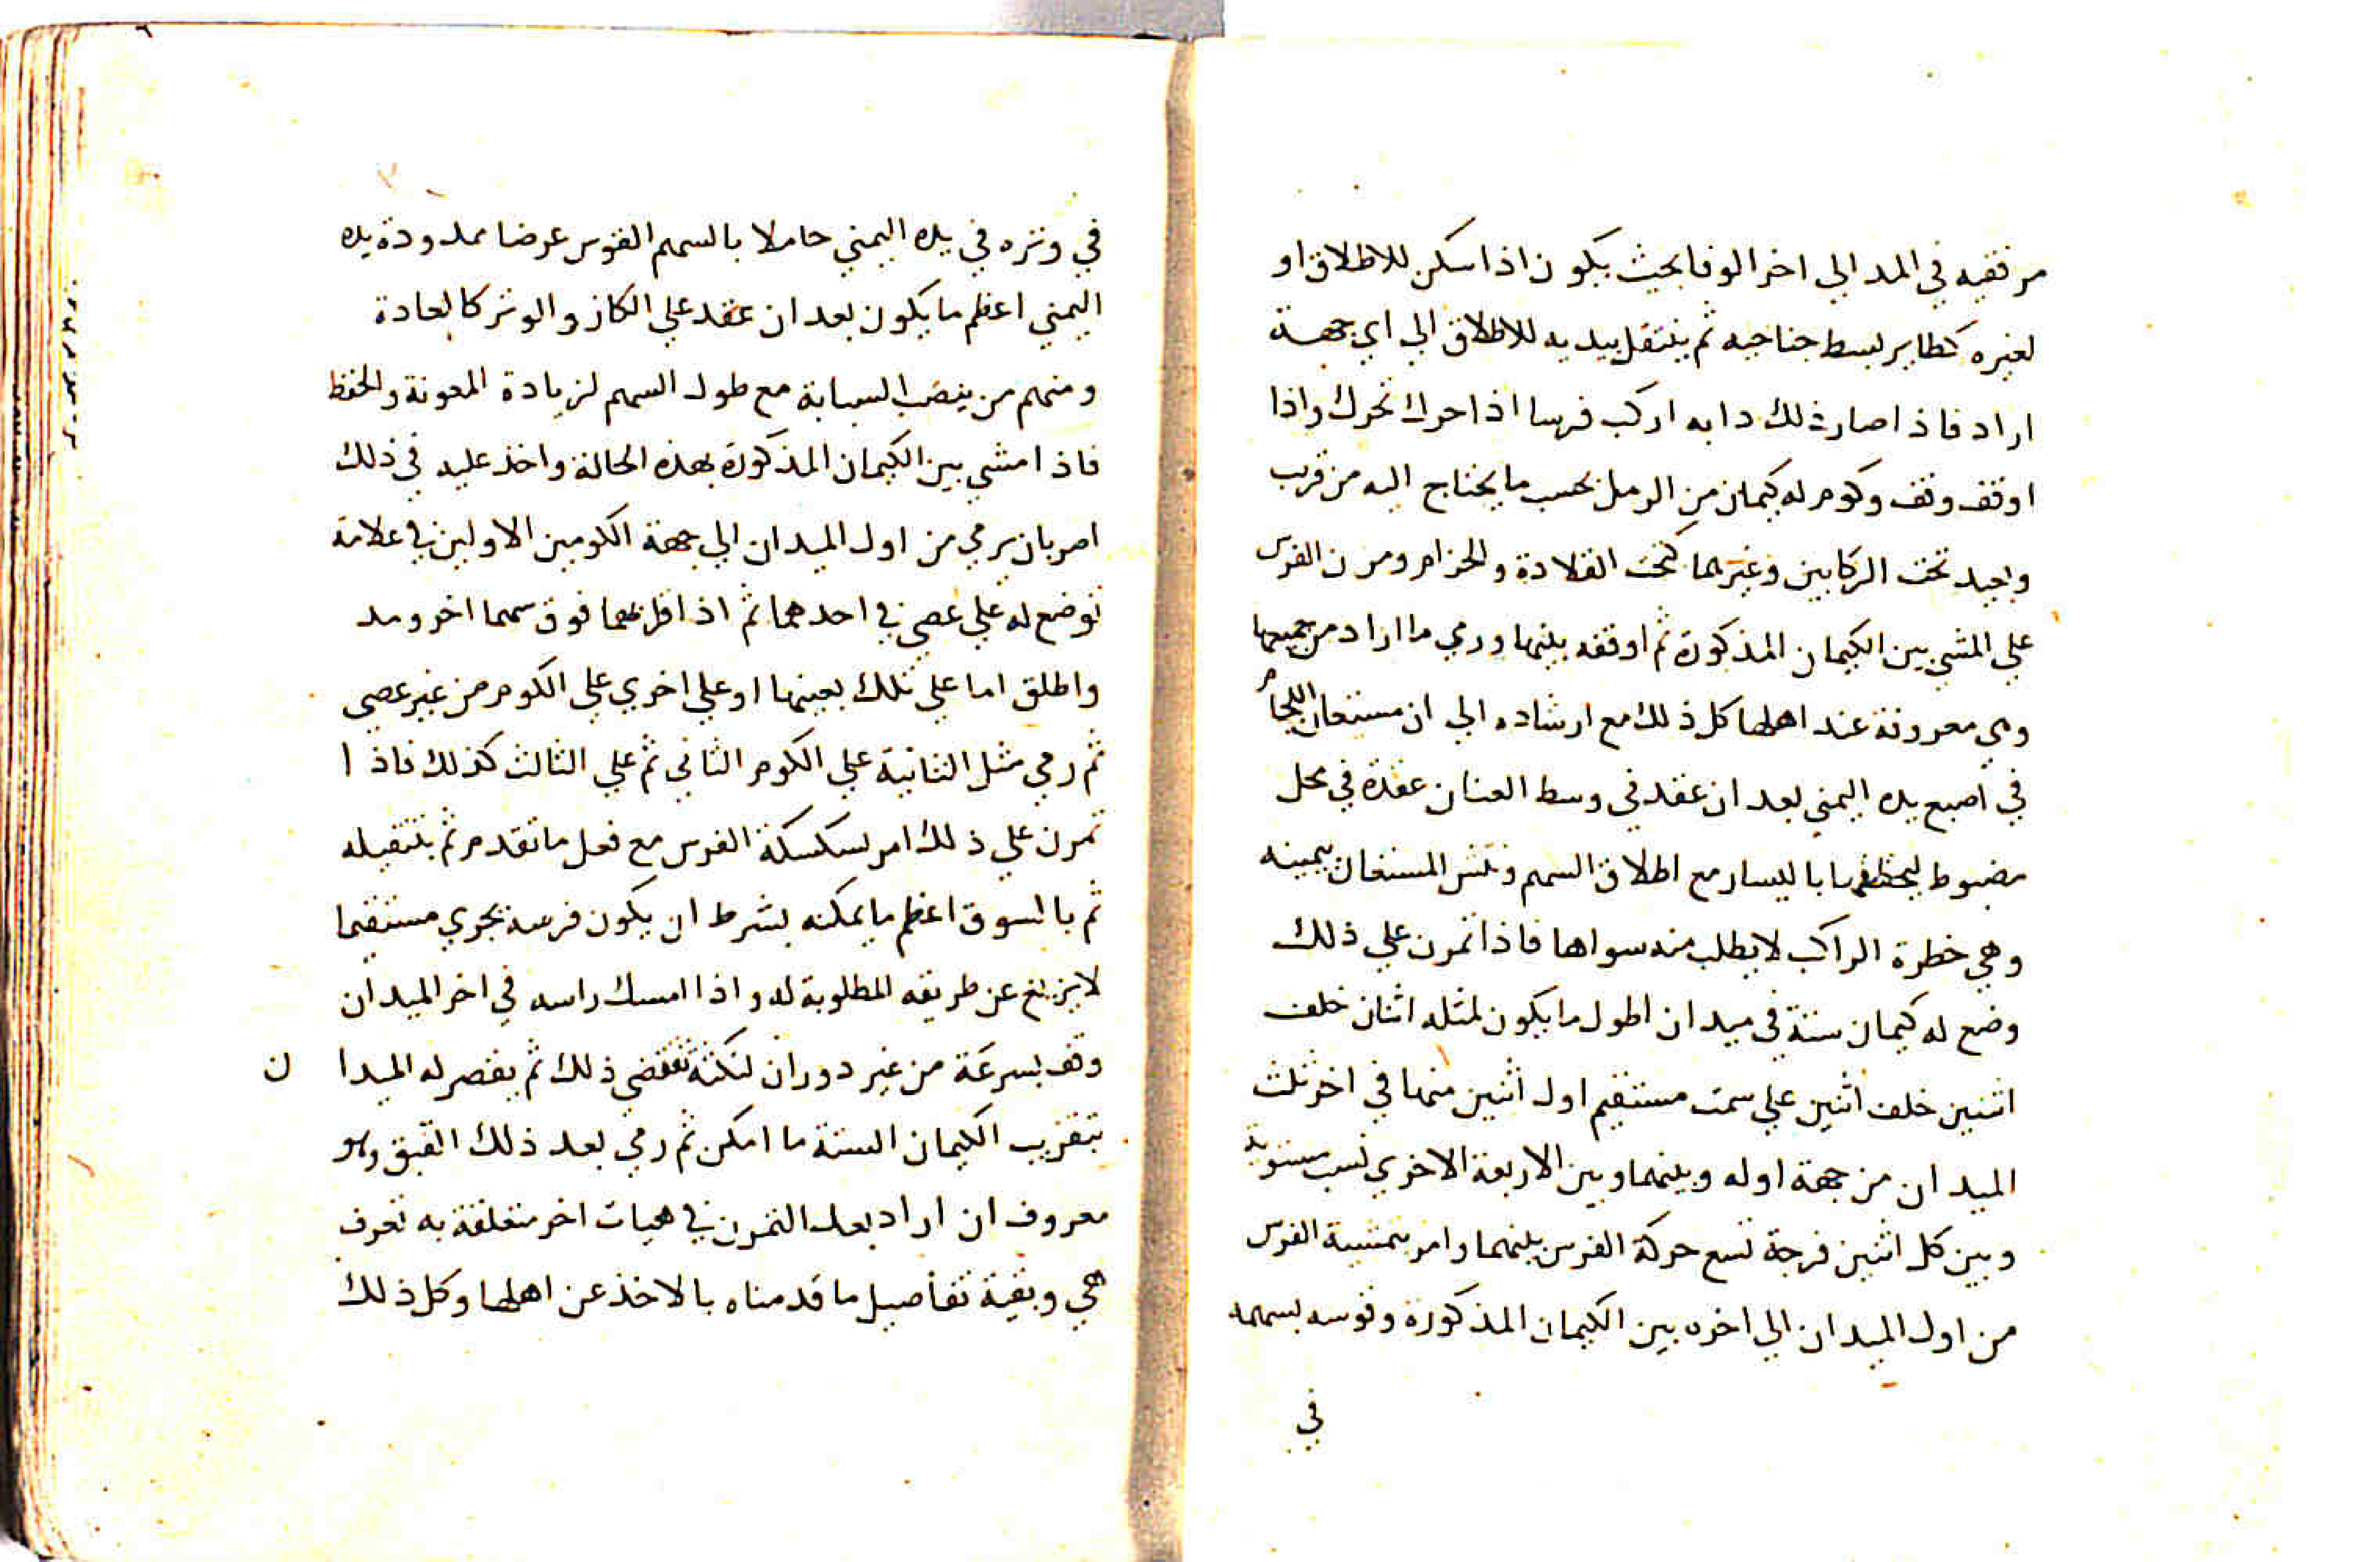 مرفقيه في المد الي اخر الوفا بحيث يكون اذا سكن للاطلاق او
لغيره كطاير بسط جناحيه ثم ينتقل بيديه للاطلاق الي اي جهة
اراد فاذا صار ذلك دابه اركب فرسا اذا حرك تحرك واذا
اوقف وقف وكوم له كيمان من الرمل بحسب ما يحتاج اليه من قريب
وبعيد تحت الركابين وغيرهما كتحت القلادة والحزام ومرن الفرس
علي المشي بين الكيمان المذكورة ثم اوقفه بينها ورمي ما اراد من جميعها
وهي معروفة عند اهلها كل ذلك مع ارشاده الي ان مستعان اللجام
في اصبع يده اليمني بعد ان عقد في وسط العنان عقدة في محل
مضبوط ليحفظها باليسار مع اطلاق السهم المستعان بيمينه
وهي خطرة الراكب لا يطلب منه سواها فاذا تمرن علي ذلك
وضع له كيمان ستة في ميدان اطول ما يكون لمثله اثنان خلف
اثنين خلف اثنين علي سمت مستقيم اول اثنين منها في اخر ثلث
الميدان من جهة اوله وبينهما وبين الاربعة الاخري نسب مستوية
وبين كل اثنين فرجة تسع حركة الفرس بينهما وامر بتمشية الفرس
من اول الميدان الي اخره بين الكيمان المذكورة وقوسه بسهمه
في
في وتره في يده اليمني حاملا بالسهم القوس عرضا ممدودة يده
اليمني اعظم ما يكون بعد ان عقد علي الكاز والوتر كالعادة
ومنهم من ينصب السبابة مع طول السهم لزيادة المعونة والحفظ
فاذا مشي بين الكيمان المذكورة بهذه الحالة واخذ عليه في ذلك
امر بان يرمي من اول الميدان الي جهة الكومين الاولين في علامة
توضع له علي عصي في احدهما ثم اذا فوق سهما اخر ومد
واطلق اما علي تلك بعينها او علي اخري علي الكوم من غير عصي
ثم رمي مثل الثانية علي الكوم الثاني ثم علي الثالث كذلك فاذا
تمرن علي ذلك امر بسكسكة الفرس مع فعل ما تقدم ثم بتنقيله
ثم بالسوق اعظم ما يمكنه بشرط ان يكون فرسه يجري مستقيما
لا يزيغ عن طريقه المطلوبة له واذا امسك راسه في اخر الميدان
وقف بسرعة من غير دوران لنكتة تقتضي ذلك ثم يقصر له الميدا ن
بتقريب الكيمان الستة ما امكن ثم رمي بعد ذلك القبق وهو
معروف ان اراد بعد التمرن في هيات اخر متعلقة به تعرف
هي وبقية تفاصيل ما قدمناه بالاخذ عن اهلها وكل ذلك